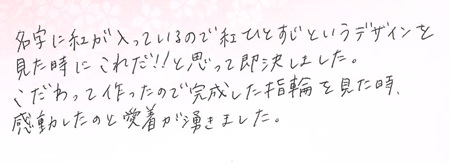 名字に紅が入っているので紅ひとすじというデザインを
見た時にこれだ!!と思って即決しました。
こだわって作ったので完成した指輪を見た時、
感動したのと愛着が湧きました。